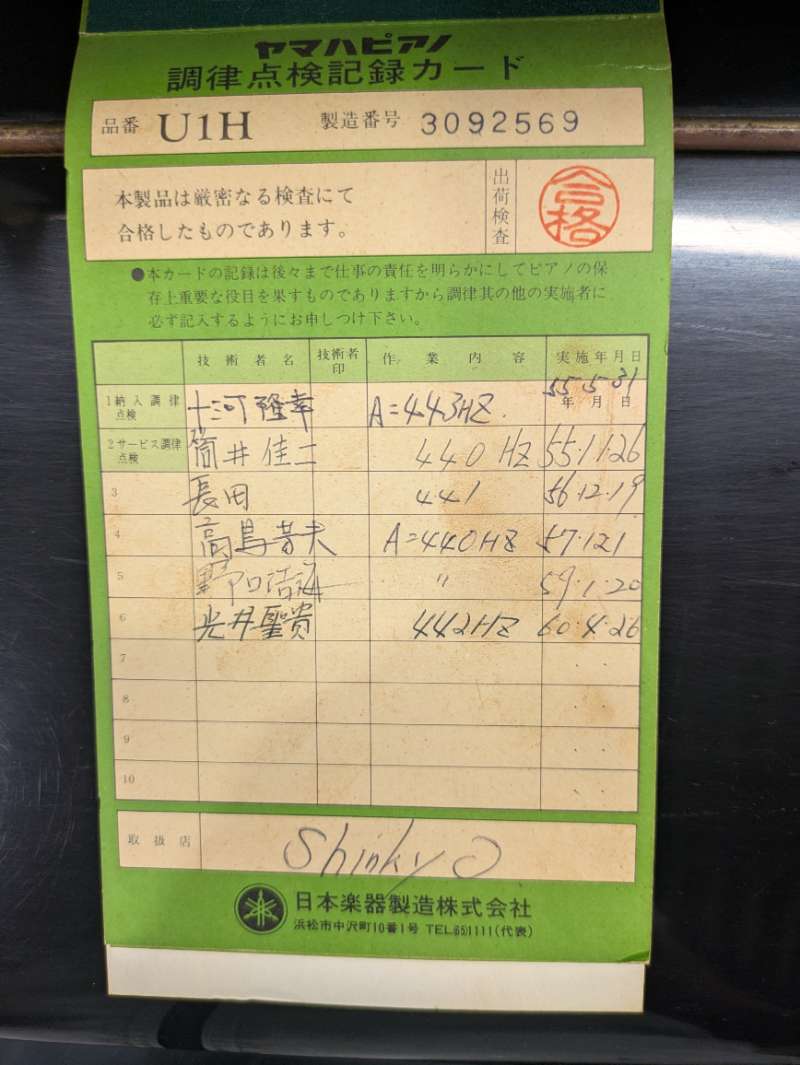 ヤマハピアノ
調律点検記録カード
品番 U1H 製造番号 3092569
本製品は厳密なる検査にて
合格したものであります。
出荷検査
合格
●本カードの記録は後々まで仕事の責任を明らかにしてピアノの保
存上重要な役目を果すものでありますから調律其の他の実施者に
必ず記入するようにお申しつけ下さい。
技術者名 技術者印 作業内容 実施年月日
1 納入調律点検 十河隆幸 A=443HZ. 55.5.31 年月日
2 サービス調律点検 筒井佳二 440HZ 55.11.26
3 長田 441 56.12.19
4 高島芳夫 A=440HZ 57.121
5 野口 〃 59.1.20
6 光井聖貴 442HZ 60.4.26
7
8
9
10
取扱店 Shinkyo
日本楽器製造株式会社
浜松市中沢町10番1号 TEL.65)1111(代表)